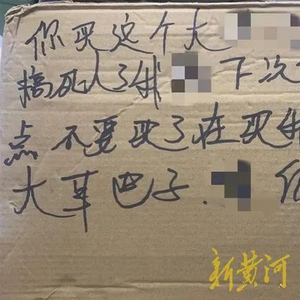 你买这个大
搞死人了我 下次
点 不要买了在买我
大草巴子. 
新黄河